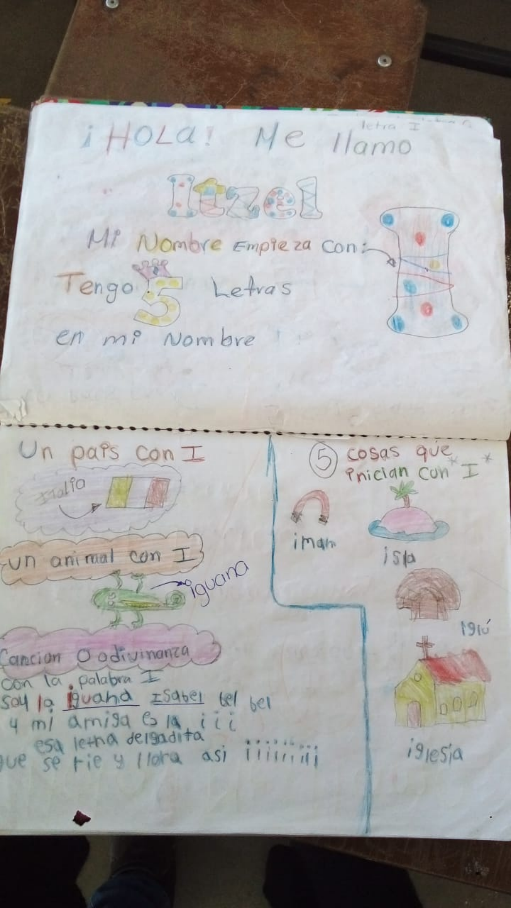 letra I
¡HOLA! Me llamo
Itzel
Mi Nombre Empieza con:
I
Tengo 5 Letras
en mi Nombre
Un país con I
Italia
un animal con I
iguana
Cancion O adivinanza
con la palabra I
soy la iguana Isabel bel bel
y mi amiga es la i i i
esa letra delgadita
que se rie y llora asi iiiiiiii
5 cosas que
inician con "I"
iman
isla
iglú
iglesia